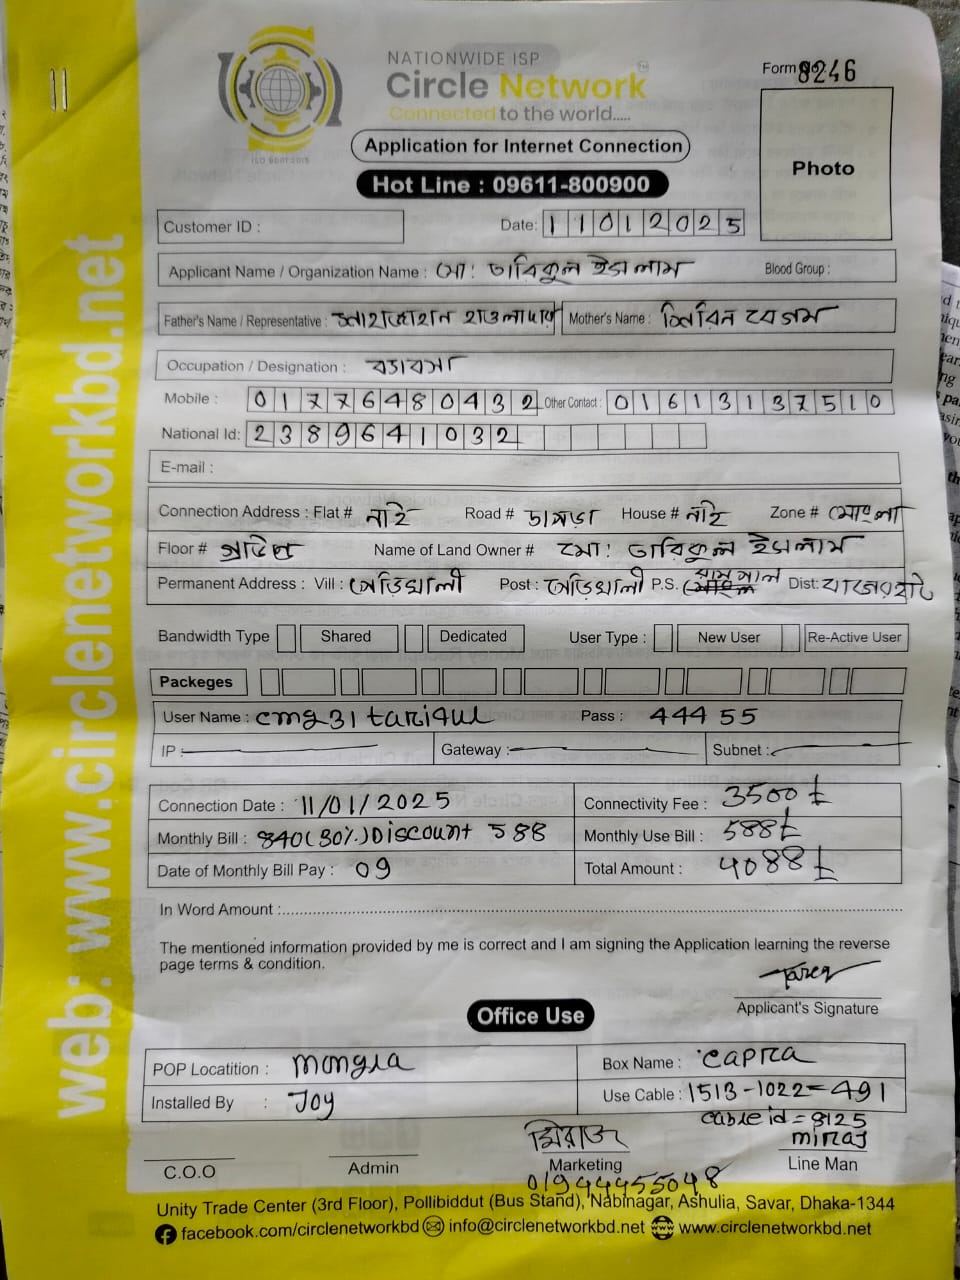 NATIONWIDE ISP
Circle Network
Connected to the world.....
ISO 9001:2015
Form No 8246
Application for Internet Connection
Hot Line : 09611-800900
Photo
Customer ID :
Date: 11012025
Applicant Name / Organization Name : মো: তারিকুল ইসলাম Blood Group :
Father's Name / Representative : হাওলাদার Mother's Name : শিরিন বেগম
Occupation / Designation : ব্যাবসা
Mobile : 01776480432 Other Contact : 01613137510
National Id: 2389641032
E-mail :
Connection Address : Flat # নাই Road # House # নাই Zone # মোংলা
Floor # Name of Land Owner # মো: তারিকুল ইসলাম
Permanent Address : Vill : Post : P.S. রামপাল Dist: বাগেরহাট
Bandwidth Type Shared Dedicated User Type : New User Re-Active User
Packeges
User Name : cmg31tariqul Pass : 44455
IP : Gateway : Subnet :
Connection Date : 11/01/2025 Connectivity Fee : 3500 ৳
Monthly Bill : 840(30%)Discount 588 Monthly Use Bill : 588৳
Date of Monthly Bill Pay : 09 Total Amount : 4088৳
In Word Amount :
The mentioned information provided by me is correct and I am signing the Application learning the reverse
page terms & condition.
Tareq
Applicant's Signature
Office Use
POP Locatition : mongla Box Name : capra
Installed By : Joy Use Cable : 1513-1022=491
cable id = 8125
মিরাজ miraj
C.O.O Admin Marketing Line Man
01944455048
Unity Trade Center (3rd Floor), Pollibiddut (Bus Stand), Nabinagar, Ashulia, Savar, Dhaka-1344
facebook.com/circlenetworkbd info@circlenetworkbd.net www.circlenetworkbd.net
web: www.circlenetworkbd.net